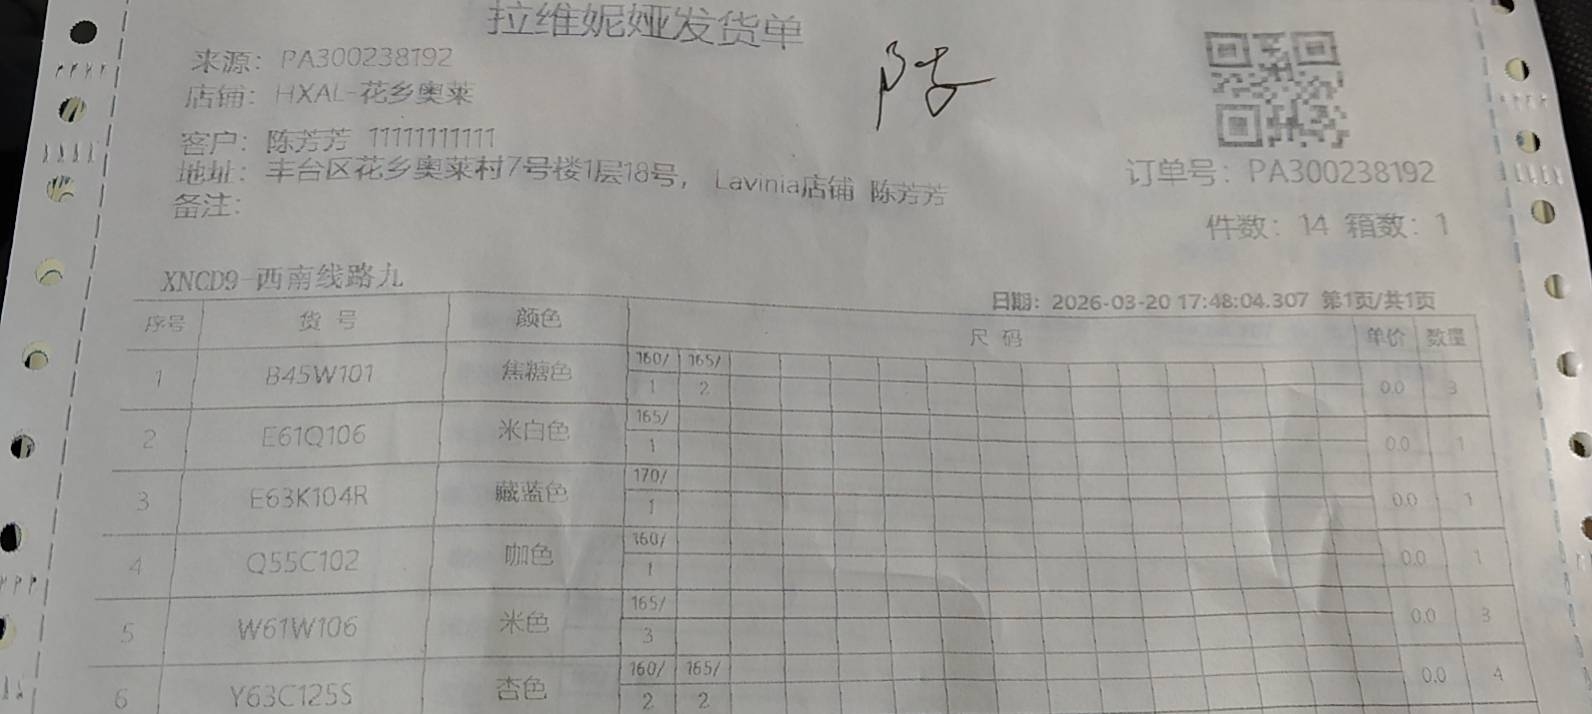 拉维妮娅发货单
来源：PA300238192
店铺：HXAL-花乡奥莱
客户：陈芳芳 11111111111
地址：丰台区花乡奥莱村7号楼1层18号， Lavinia店铺 陈芳芳
备注：
订单号：PA300238192
件数：14 箱数：1
XNCD9-西南线路九
日期：2026-03-20 17:48:04.307 第1页/共1页
序号 货 号 颜色 尺 码 单价 数量
1 B45W101 焦糖色 160/ 165/ 0.0 3
1 2
2 E61Q106 米白色 165/ 0.0 1
1
3 E63K104R 藏蓝色 170/ 0.0 1
1
4 Q55C102 咖色 160/ 0.0 1
1
5 W61W106 米色 165/ 0.0 3
3
6 Y63C125S 杏色 160/ 165/ 0.0 4
2 2